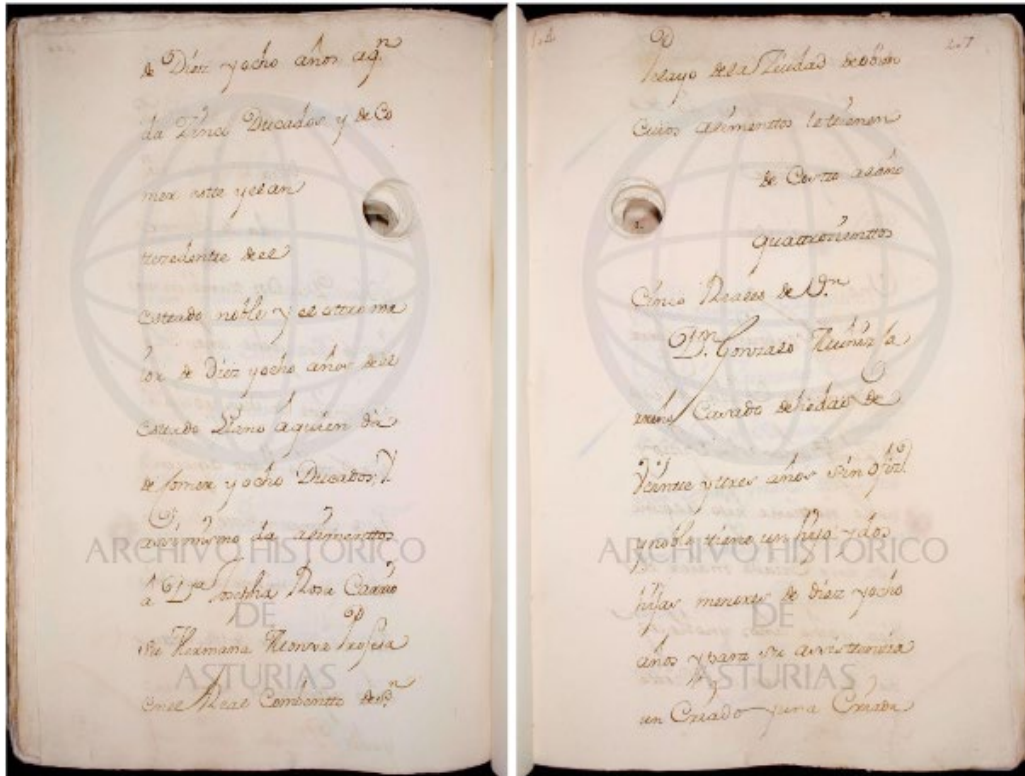 de Diez y ocho años aqn
da Zinco Ducados y de Co
mer este y el an
tezedente de el
estado noble y el ottro ma
ior de Diez y ocho años de el
estado Llano a quien da
de Comer y ocho Ducados, Y
assimismo da alimenttos
a Da Josepha Rosa Carrio
su Hermana Monxa Profesa
en el Real Combentto de Sn
207
Pelayo de la Ziudad de obiedo
Cuios alimenttos le tienen
de Costto al año
quattrozienttos
Cinco Reales de Vn
Dn Gonzalo
Casado de hedad de
Veintte y tres años sin ofizio
y noble tiene un hijo y dos
hijas menores de diez y ocho
años y para su asisttenzia
un Criado y una Criada
ARCHIVO HISTÓRICO
DE
ASTURIAS
ARCHIVO HISTÓRICO
DE
ASTURIAS